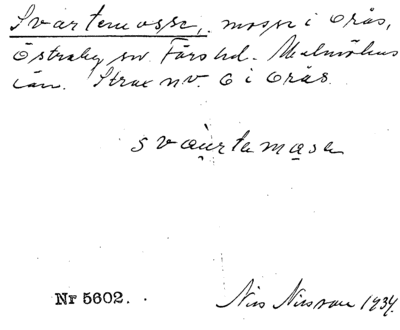 Svartemosse, mosse i Orås,
Östraby sn. Färs hd. Malmöhus
län. Strax nv. O i Orås.
svaurtamosa
Nr 5602.
Nils Nilsson 1934.